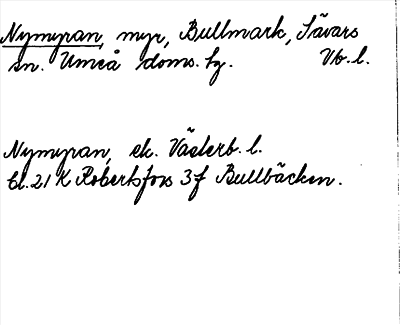 Nymyran, myr, Bullmark, Sävars
sn. Umeå doms. hg. Vb. l.
Nymyran, ek. Västerb. l.
bl. 21 K Robertsfors 3f Bullbäcken.